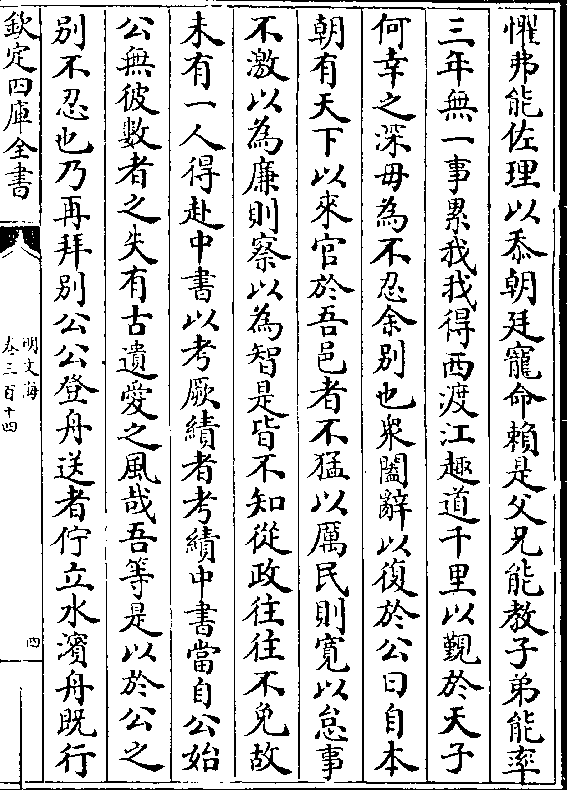 懼弗能佐理以忝朝廷寵命賴是父兄能教子弟能率
三年無一事累我我得西渡江趣道千里以覲於天子
何幸之深毋為不忍余別也衆闔辭以復於公曰自本
朝有天下以來官於吾邑者不猛以厲民則寛以怠事
不激以為廉則察以為智是皆不知從政往往不免故
未有一人得赴中書以考厥績者考績中書當自公始
公無彼數者之失有古遺愛之風哉吾等是以於公之
別不忍也乃再拜別公公登舟送者佇立水濱舟既行
欽定四庫全書
明文海
卷三百十四
四